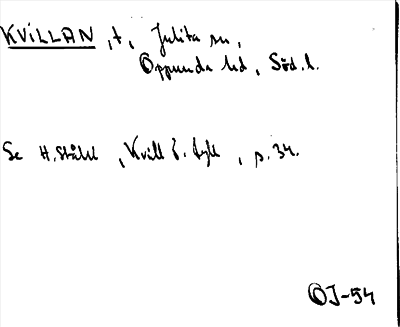 KVILLAN, t, Julita sn,
Oppunda hd, Söd.l.
Se H. Ståhl, Kvill o. tyll, s. 34.
OJ-54